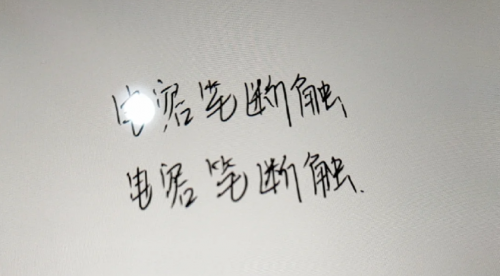 电容笔断触
电容笔断触